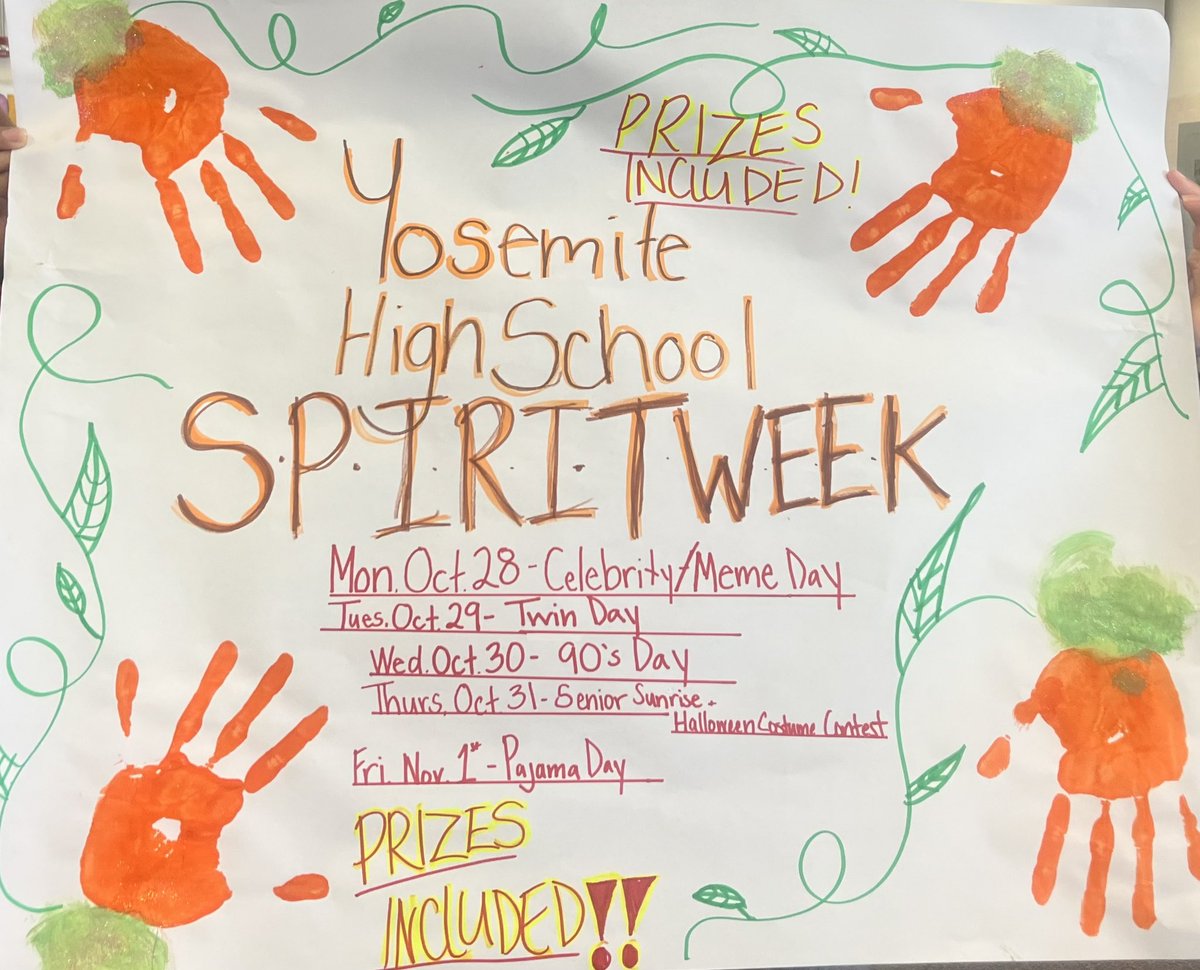 PRIZES
INCLUDED!
Yosemite
High School
S.P.I.R.I.T WEEK
Mon. Oct. 28 - Celebrity/Meme Day
Tues. Oct. 29 - Twin Day
Wed. Oct. 30 - 90's Day
Thurs. Oct 31 - Senior Sunrise +
Halloween Costume Contest
Fri. Nov. 1st - Pajama Day
PRIZES
INCLUDED!!